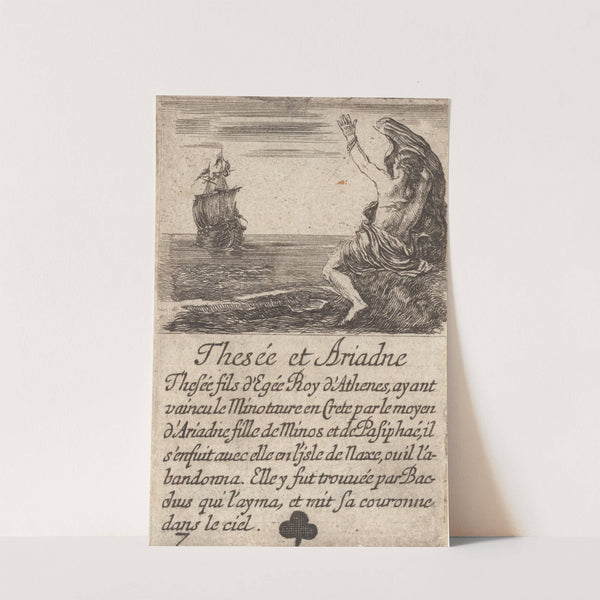 Thesée et Ariadne
Thesée fils d'Egée Roy d'Athenes, ayant
vaincu le Minotaure en Crete par le moyen
d'Ariadne fille de Minos et de Pasiphaé, il
s'enfuit avec elle en l'isle de Naxe, ou il l'a-
bandonna. Elle y fut trouuée par Bac-
chus qui l'ayma, et mit sa couronne
dans le ciel.
7